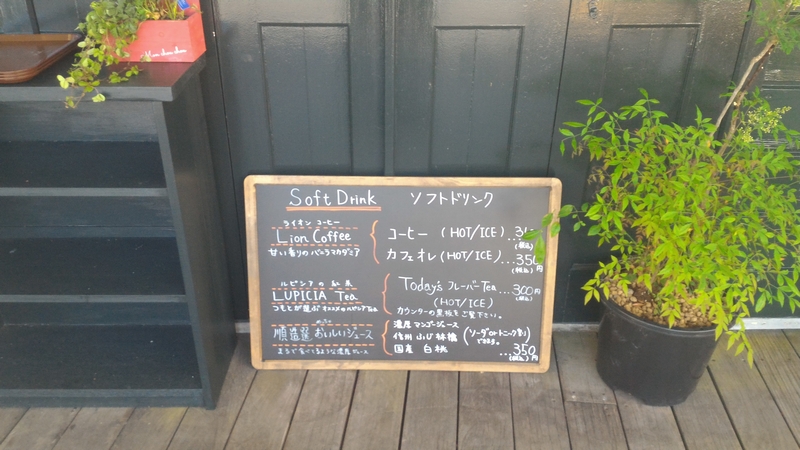 Soft Drink ソフトドリンク
ライオン コーヒー
Lion Coffee
甘い香りのバニラマカダミア
コーヒー (HOT/ICE)
(税込)
カフェオレ (HOT/ICE)...350円
(税込)
ルピシアの紅茶
LUPICIA Tea
Today's フレーバーTea...300円
(税込)
(HOT/ICE)
カウンターの黒板をご覧下さい。
順造選 おいしいジュース
まるで食べてるような濃厚ジュース
濃厚 マンゴージュース
信州 山ぴ林檎
国産 白桃
...350円
(税込)